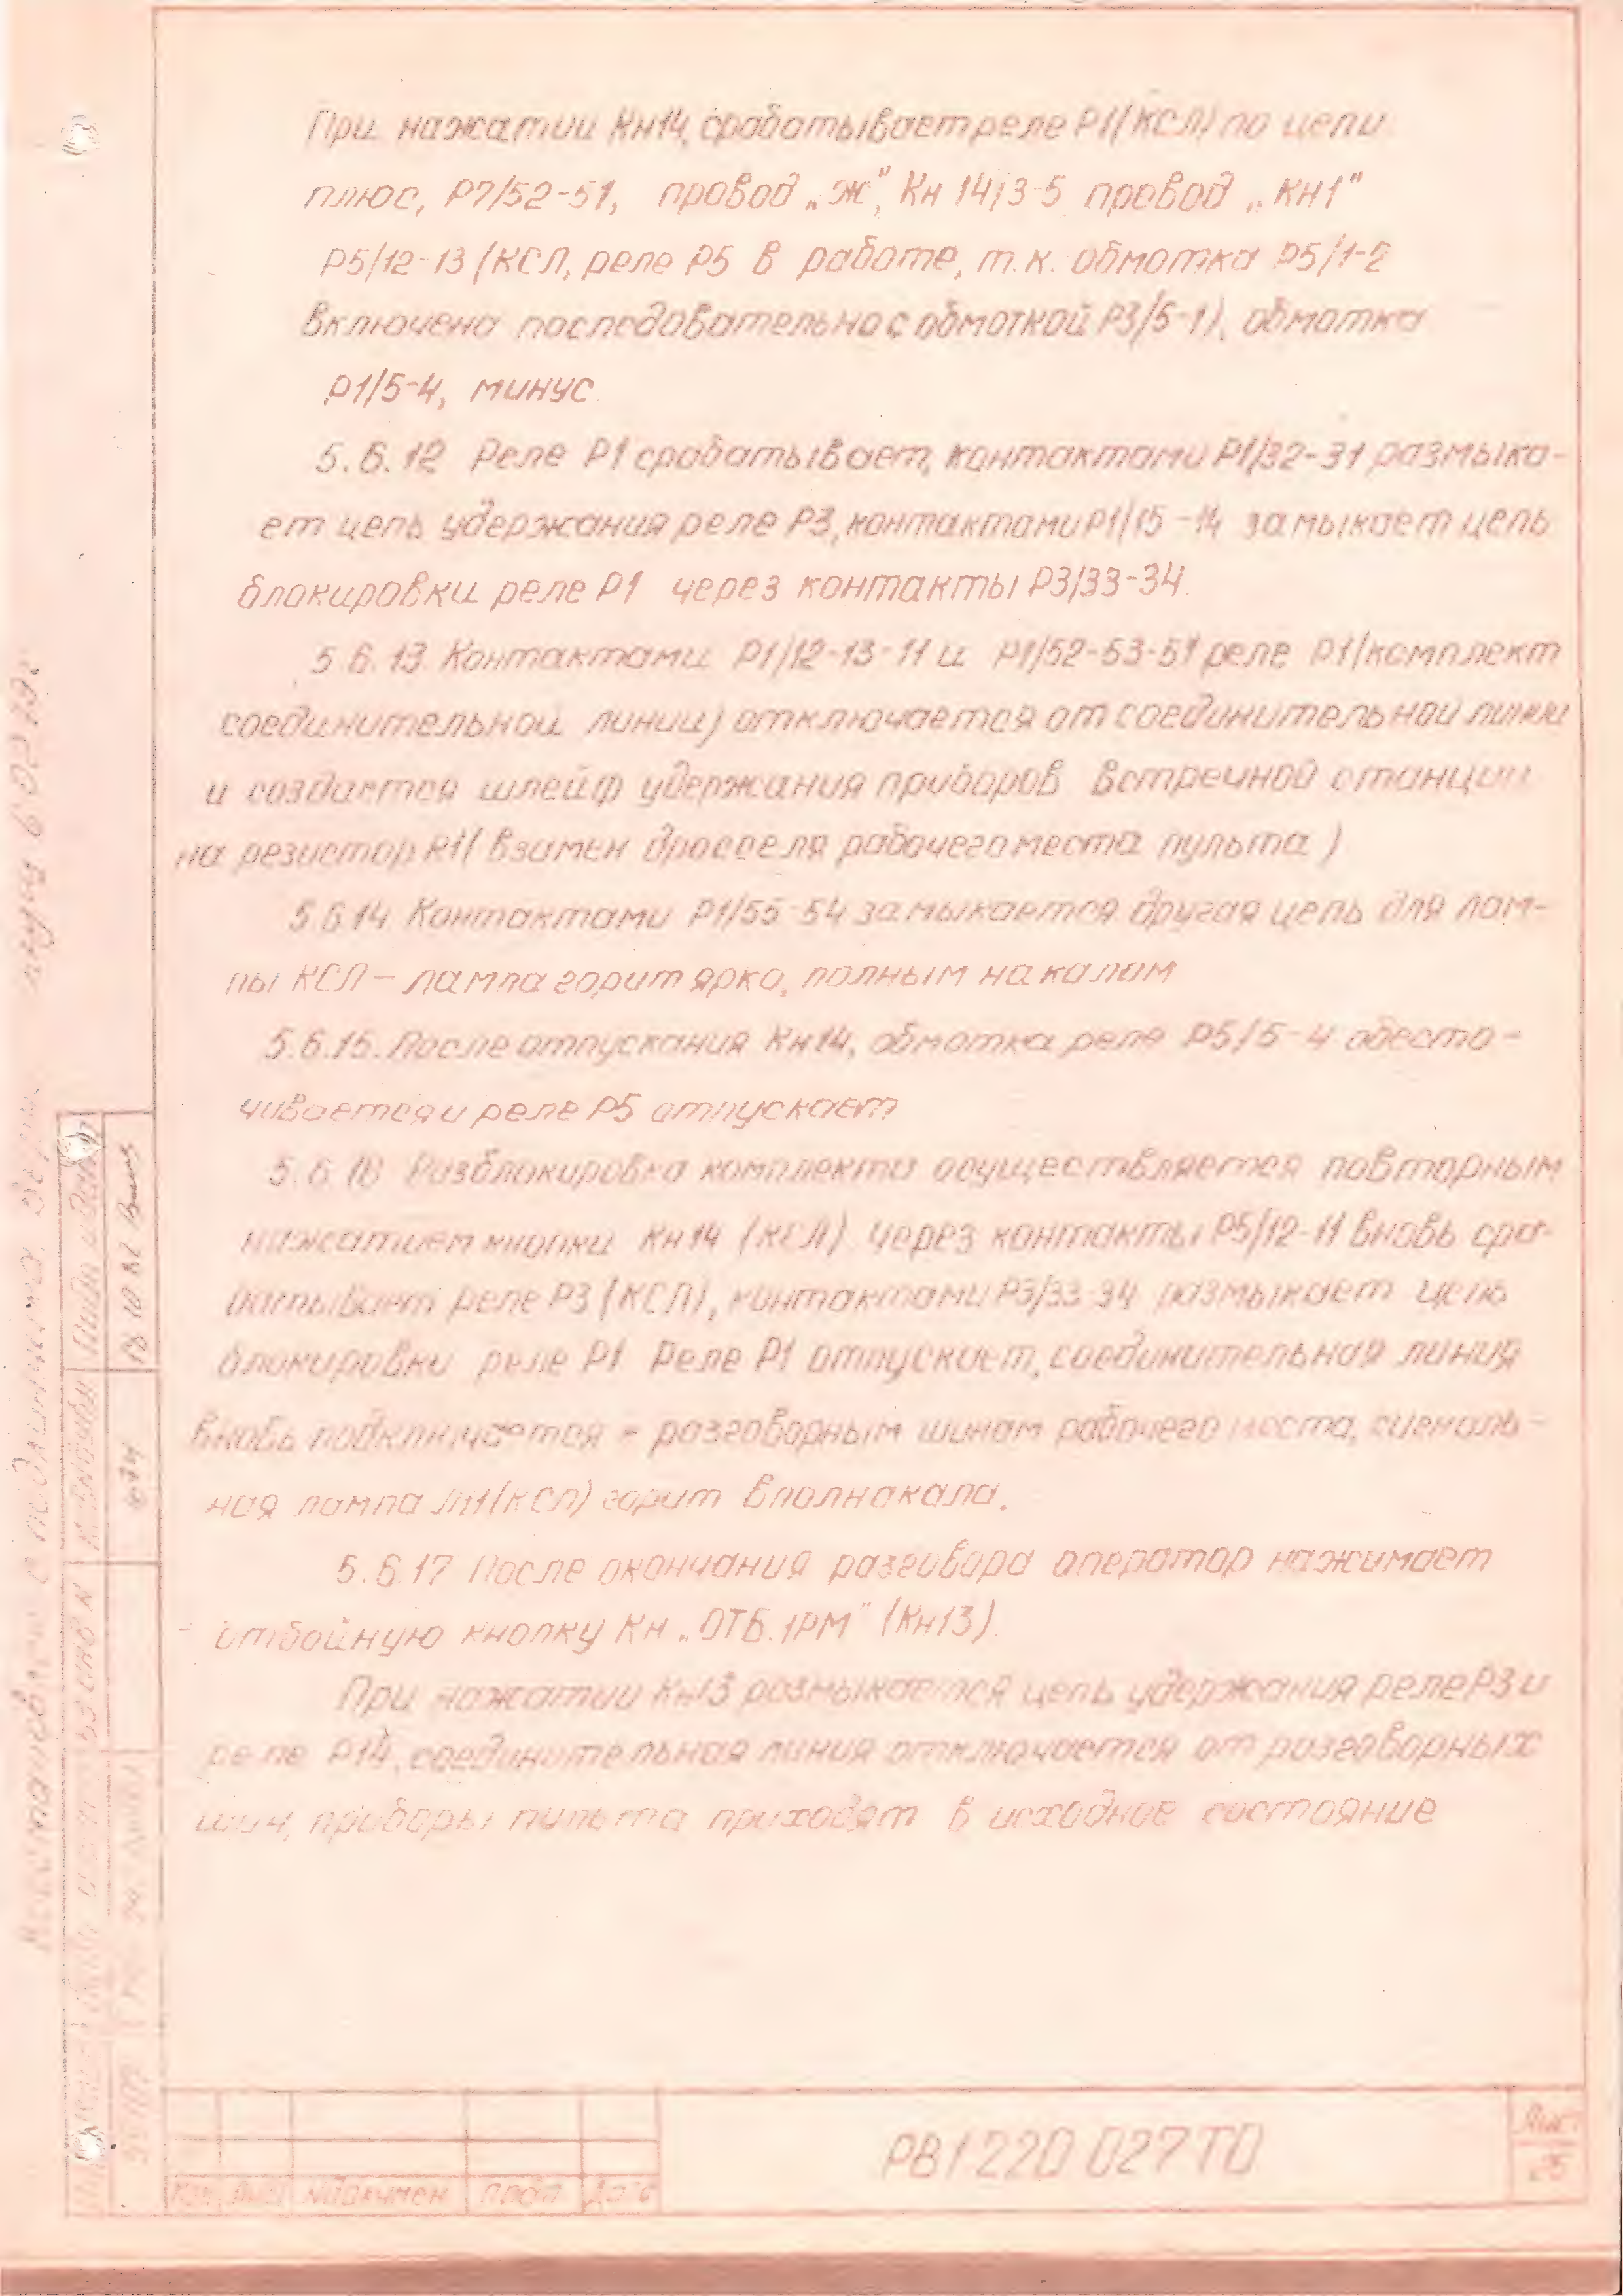 При нажатии Кн14, срабатывает реле Р1(КСЛ) по цепи
плюс, Р7/52-51, провод „ж", Кн 14/3-5 провод „КН1"
Р5/12-13 (КСЛ, реле Р5 в работе, т.к. обмотка Р5/1-2
включена последовательно с обмоткой Р3/5-1), обмотка
Р1/5-4, минус.
5.6.12 Реле Р1 срабатывает, контактами Р1/32-31 размыка-
ет цепь удержания реле Р3, контактами Р1/15-14 замыкает цепь
блокировки реле Р1 через контакты Р3/33-34.
5.6.13. Контактами Р1/12-13-11 и Р1/52-53-51 реле Р1(комплект
соединительной линии) отключается от соединительной линии
и создается шлейф удержания приборов встречной станции
на резистор R1( взамен дросселя рабочего места пульта )
5.6.14 Контактами Р1/55-54 замыкается другая цепь для лам-
пы КСЛ – лампа горит ярко, полным накалом
5.6.15. После отпускания Кн14, обмотка реле Р5/5-4 обесто-
чивается и реле Р5 отпускает
5.6.16 Разблокировка комплекта осуществляется повторным
нажатием кнопки Кн14 (КСЛ) через контакты Р5/12-11 вновь сра-
батывает реле Р3 (КСЛ), контактами Р3/33-34 размыкает цепь
блокировки реле Р1. Реле Р1 отпускает, соединительная линия
вновь подключается к разговорным шинам рабочего места, сигналь-
ная лампа ЛН1(КСЛ) горит вполнакала.
5.6.17 После окончания разговора оператор нажимает
отбойную кнопку Кн „ОТБ.1РМ" (Кн13).
При нажатии Кн13 размыкается цепь удержания реле Р3 и
реле Р14, соединительная линия отключается от разговорных
шин, приборы пульта приходят в исходное состояние
РВ1 220 027 ТО
Лист
Изм Лист № докумен Подп Дата
Подп и дата
18 10 82
Взам инв N